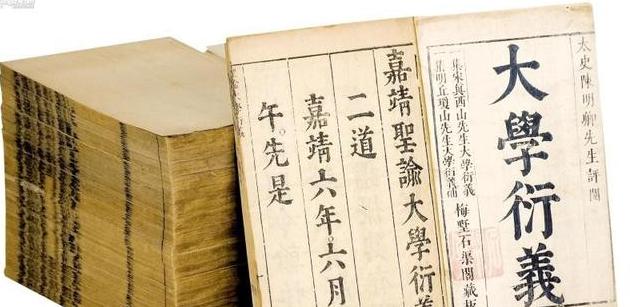 太史陳明卿先生評閱
大學衍義
集宋眞西山先生大學衍義
集明丘瓊山先生大學衍義補
梅墅石渠閣藏板
嘉靖聖諭大學衍義
二道
嘉靖六年六月
午先是